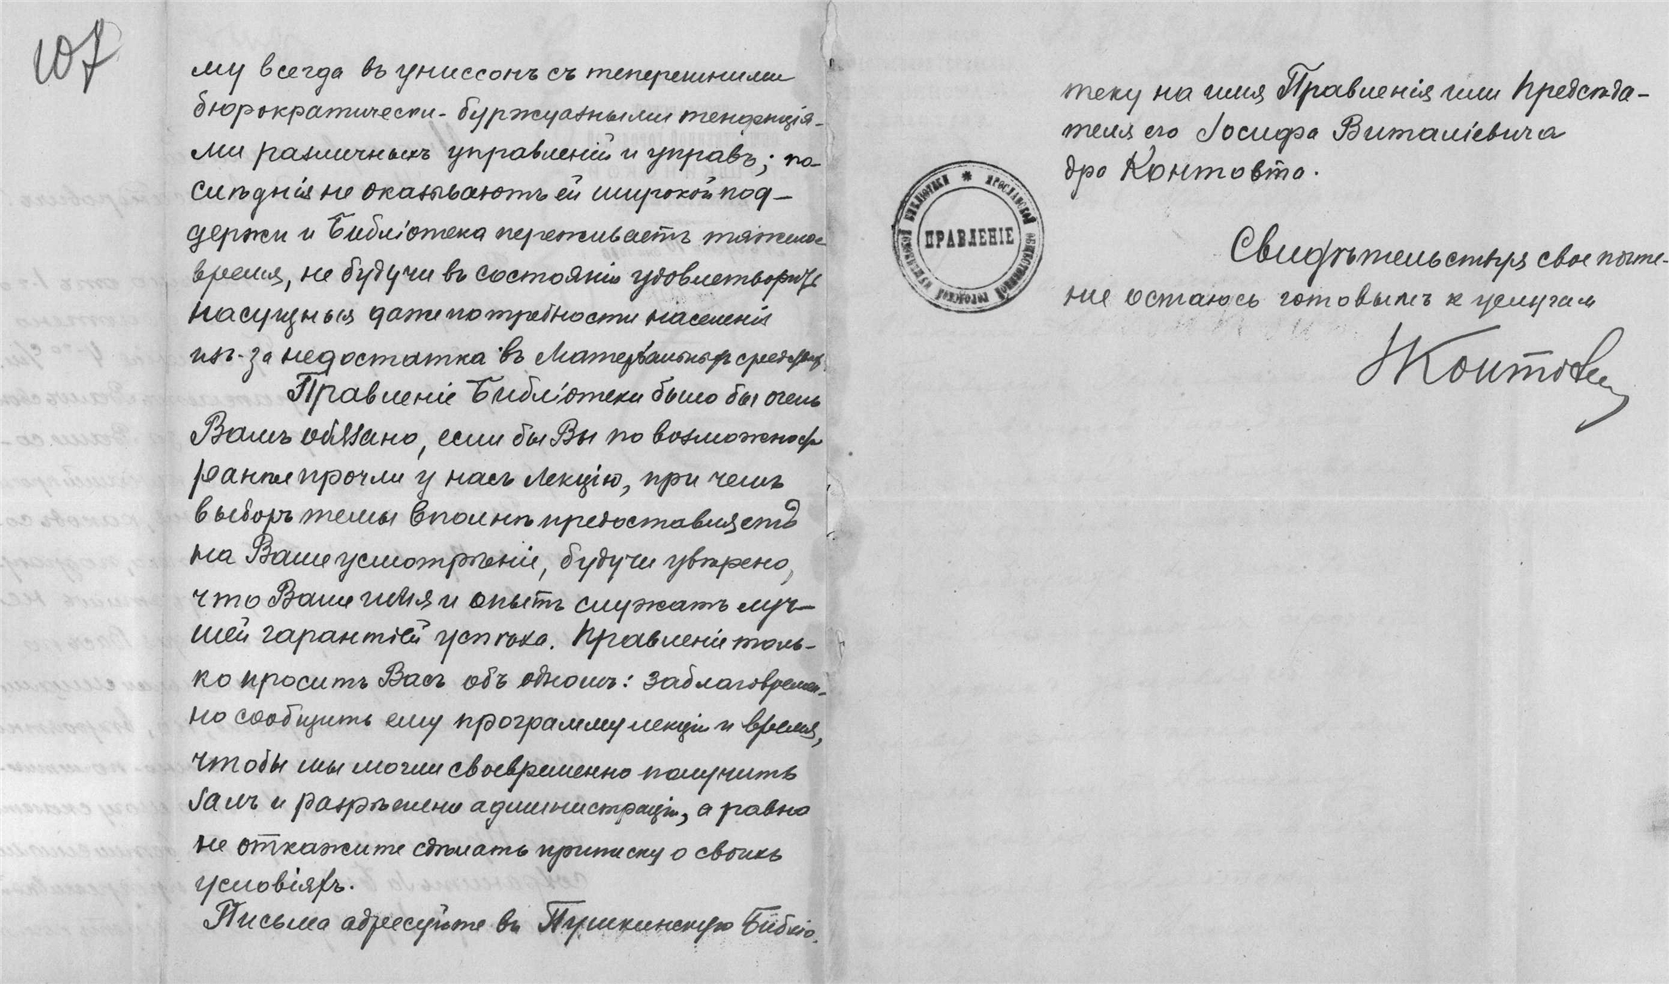 107
му всегда въ униссонъ съ теперешними
бюрократически-буржуазными тенденція-
ми различныхъ управленій и управъ; по-
слѣднія не оказываютъ ей широкой под-
держки и Библіотека переживаетъ тяжелое
время, не будучи въ состояніи удовлетворить
насущныя даже потребности населенія
изъ-за недостатка въ матерьальныхъ средствахъ.
Правленіе Библіотеки было бы очень
Вамъ обязано, если бы Вы по возможности
ранѣе прочли у насъ лекцію, при чемъ
выборъ темы вполнѣ предоставляетъ
на Ваше усмотрѣніе, будучи увѣрено,
что Ваше имя и опытъ служатъ луч-
шей гарантіей успѣха. Правленіе толь-
ко проситъ Васъ объ одномъ: заблаговремен-
но сообщить ему программу лекціи и время,
чтобы мы могли своевременно получить
залъ и разрѣшеніе администраціи, а равно
не откажите сдѣлать приписку о своихъ
условіяхъ.
Письма адресуйте въ Пушкинскую Библіо-
теку на имя Правленія или Предсѣда-
теля его Іосифа Виталіевича
дра Контовта.
ПРАВЛЕНІЕ
Свидѣтельствуя свое почте-
ніе остаюсь готовымъ к услугамъ